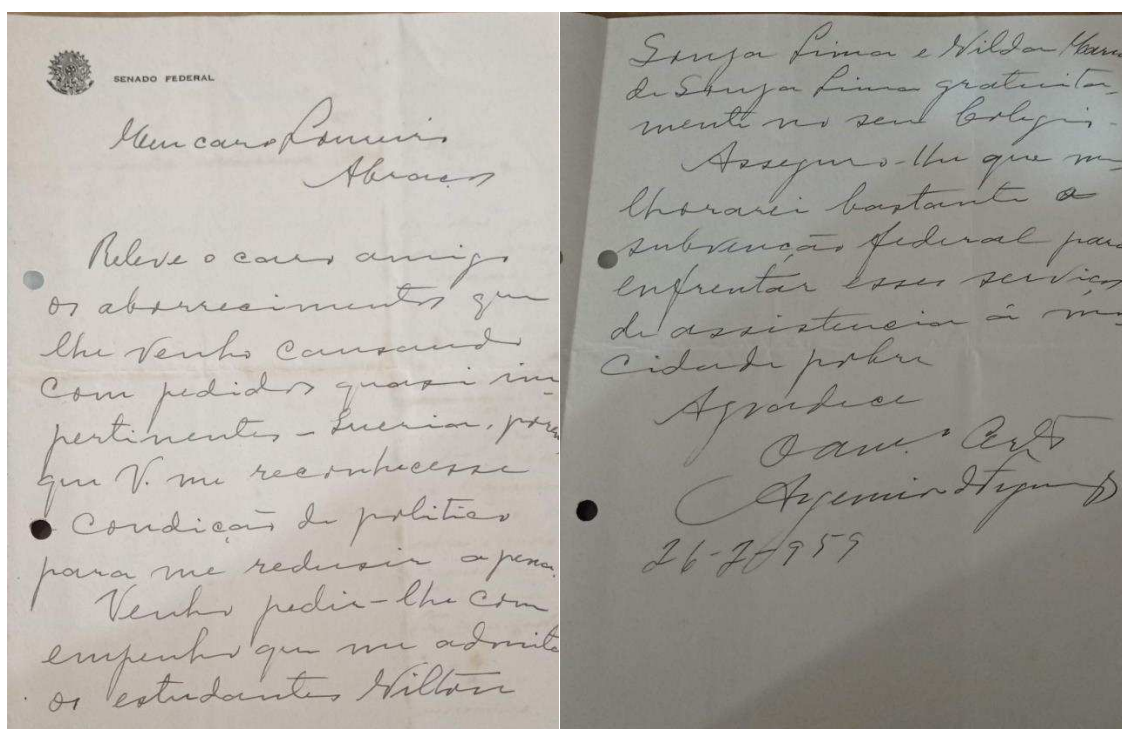 SENADO FEDERAL
Meu caro Loureiro
Abraços
Releve o caro amigo
os aborrecimentos que
lhe venho causando
com pedidos quasi im-
pertinentes - Queria, porem
que V. me reconhecesse
a condição de politico
para me redusir a pena.
Venho pedir-lhe com
empenho que me admita
os estudantes Nilton
Souza Lima e Nilda Maria
de Souza Lima gratuita-
mente no seu Colegio.
Asseguro-lhe que me-
lhorarei bastante a
subvenção federal para
enfrentar esses serviços
de assistencia à mo-
cidade pobre
Agradece
O am.º Certo
26-2-959